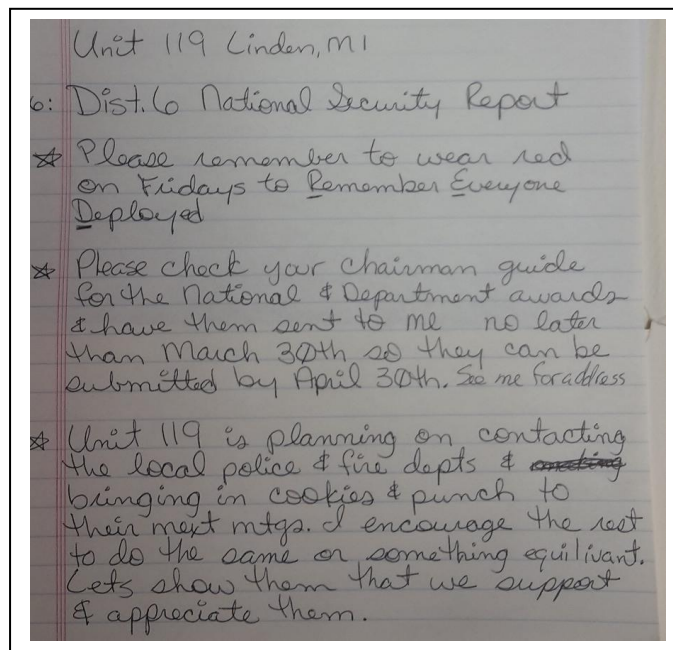 Unit 119 Linden, MI
6: Dist. 6 National Security Report
☆ Please remember to wear red
on Fridays to Remember Everyone
Deployed
☆ Please check your chairman guide
for the National & Department awards
& have them sent to me no later
than March 30th so they can be
submitted by April 30th. See me for address
☆ Unit 119 is planning on contacting
the local police & fire depts &
bringing in cookies & punch to
their next mtgs. I encourage the rest
to do the same or something equilivant.
Lets show them that we support
& appreciate them.